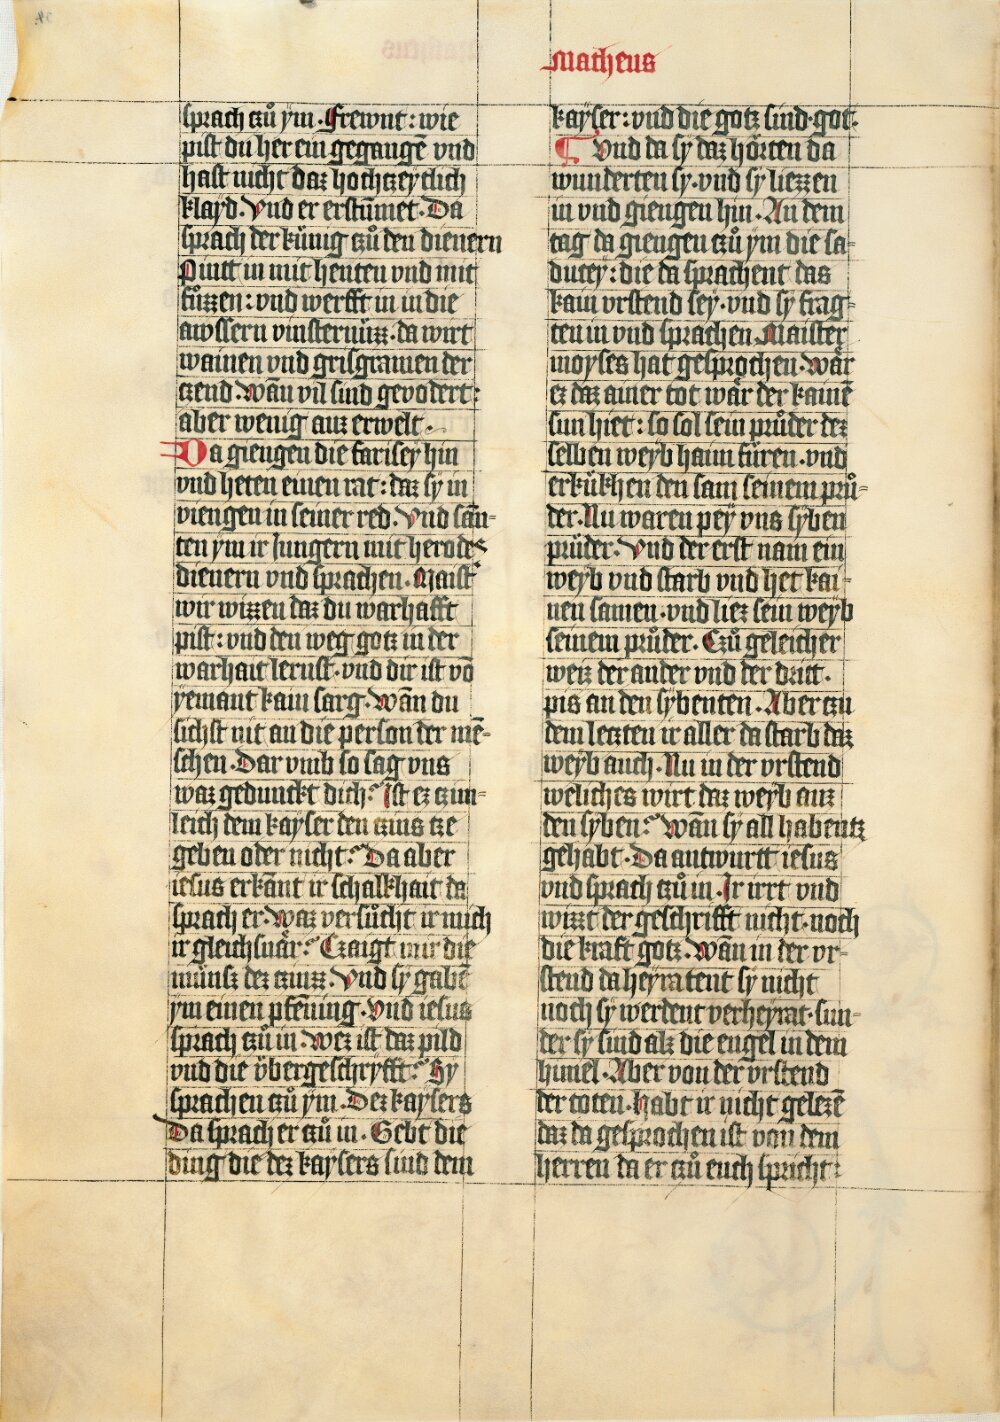 Matheus
sprach czů ym. Frewnt: wie
pist du her ein gegangē vnd
hast nicht daz hochczeytlich
klayd. Vnd er erstu̅met. Da
sprach der künig czů den dienern
Pintt in mit henten vnd mit
fůzzen: vnd werfft in in die
awssern vinsternüzz. da wirt
wainen vnd grisgramen der
czend. Wān vil sind gevodert:
aber wenig auz erwelt.
Da giengen die farisey hin
vnd heten einen rat: daz sy in
viengen in seiner red. Vnd sān-
ten ym ir Jungern mit herodes
dienern vnd sprachen. Maist
wir wizzen daz du warhafft
pist: vnd den weg gotz in der
warhait lernst. vnd dir ist vō
yemant kain sarg. Wān du
sichst nit an die person der mē-
schen. Dar vmb so sag vns
waz gedunckt dich? Ist ez czim-
leich dem kayser den czins cze
geben oder nicht? Da aber
iesus erkānt ir schalkhait da
sprach er. Waz versůcht ir mich
ir gleichsnär? Czaigt mir die
münsz dez czinzz. Vnd sy gabē
ym einen pfēning. Vnd iesus
sprach czů in. Wez ist daz pild
vnd die übergeschryfft? Sy
sprachen czů ym. Dez kaysers
Da sprach er czů in. Gebt die
ding die dez kaysers sind dem
kayser: vnd die gotz sind. got.
Vnd da sy daz hörten da
wunderten sy. vnd sy liezzen
in vnd giengen hin. An dem
tag da giengen czů ym die sa-
ducey: die da sprachent das
kain vrstend sey. vnd sy frag-
ten in vnd sprachen. Maister
moyses hat gesprochen. Wär
ez daz ainer tot wär der kainē
sun hiet: so sol sein průder dez
selben weyb haim füren. vnd
erkükhen den sam seinem prů-
der. Nu waren pey vns syben
prüder. Vnd der erst nam ein
weyb vnd starb vnd het kai-
nen samen. vnd liez sein weyb
seinem průder. Czů geleicher
weiz der ander vnd der dritt.
pis an den sybenten. Aber czu
dem letzten ir aller da starb daz
weyb auch. Nu in der vrstend
weliches wirt daz weyb auz
den syben? Wān sy all habentz
gehabt. Da antwurtt iesus
vnd sprach czů in. Ir irrt vnd
wizzt der geschrifft nicht. noch
die kraft gotz. Wān in der vr-
stend da heyratent sy nicht
noch sy werdent verheyrat. sun-
der sy sind alz die engel in dem
himel. Aber von der vrstend
der toten. habt ir nicht gelezē
daz da gesprochen ist von dem
herren da er czů euch spricht: